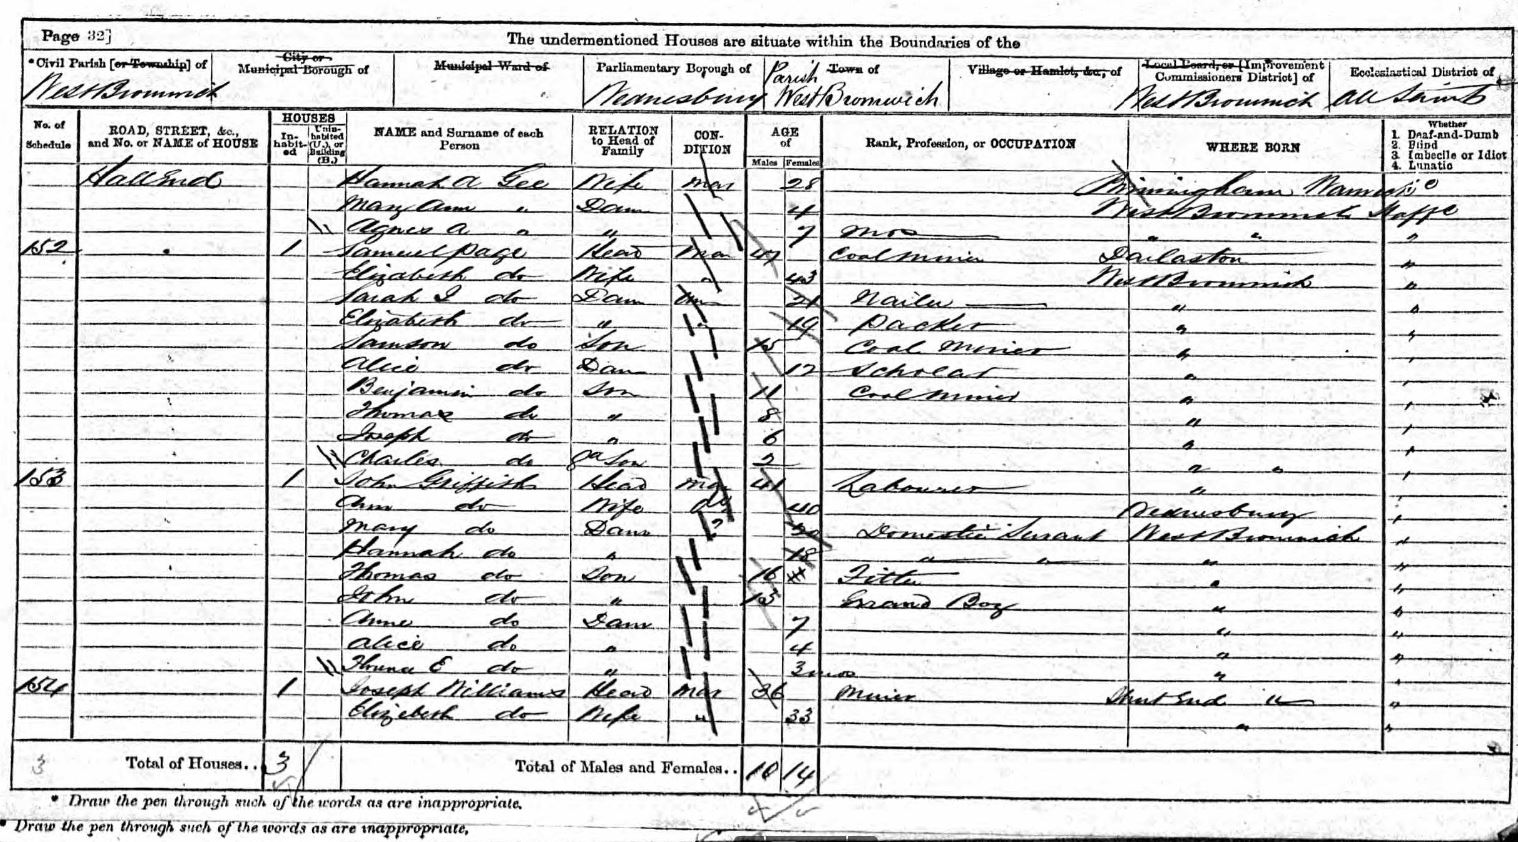 Page 32]
The undermentioned Houses are situate within the Boundaries of the
*Civil Parish [or Township] of
City or Municipal Borough of
Municipal Ward of
Parliamentary Borough of
Parish Town of
Village or Hamlet, &c., of
Local Board, or [Improvement Commissioners District] of
Ecclesiastical District of
West Bromwich Wednesbury West Bromwich West Bromwich All Saints
No. of Schedule
ROAD, STREET, &c., and No. or NAME of HOUSE
HOUSES
In-habit-ed
Unin-habited (U.), or Building (B.)
NAME and Surname of each Person
RELATION to Head of Family
CON-DITION
AGE of
Males Females
Rank, Profession, or OCCUPATION
WHERE BORN
Whether
1. Deaf-and-Dumb
2. Blind
3. Imbecile or Idiot
4. Lunatic
Hall End Hannah A Gee Wife Mar 28 Birmingham
Mary Ann " Daur 4 West Bromwich Staffs
Agnes A " " 7 Mos " " "
152 " 1 Samuel Page Head Mar 47 Coal Miner Darlaston "
Elizabeth do Wife " 43 West Bromwich "
Sarah J do Daur Un 21 Nailer " "
Elizabeth do " " 19 Packer " "
Samson do Son 15 Coal Miner " "
Alice do Daur 12 Scholar " "
Benjamin do Son 11 Coal Miner " "
Thomas do " 8 " "
Joseph do " 6 " "
Charles do Ga Son 2 " " "
153 1 John Griffiths Head Mar 41 Labourer " "
Ann do Wife do 40 Wednesbury "
Mary do Daur 20 Domestic Servant West Bromwich "
Hannah do " 18 " " " "
Thomas do Son 16 Fitter " "
John do " 13 Errand Boy " "
Anne do Daur 7 " "
Alice do " 4 " "
E do " 3 mos " "
154 1 Joseph Williams Head Mar 36 Miner Shut End " "
Elizebeth do Wife " 33 " "
3 Total of Houses.. 3 Total of Males and Females.. 10 14
* Draw the pen through such of the words as are inappropriate.
* Draw the pen through such of the words as are inappropriate.